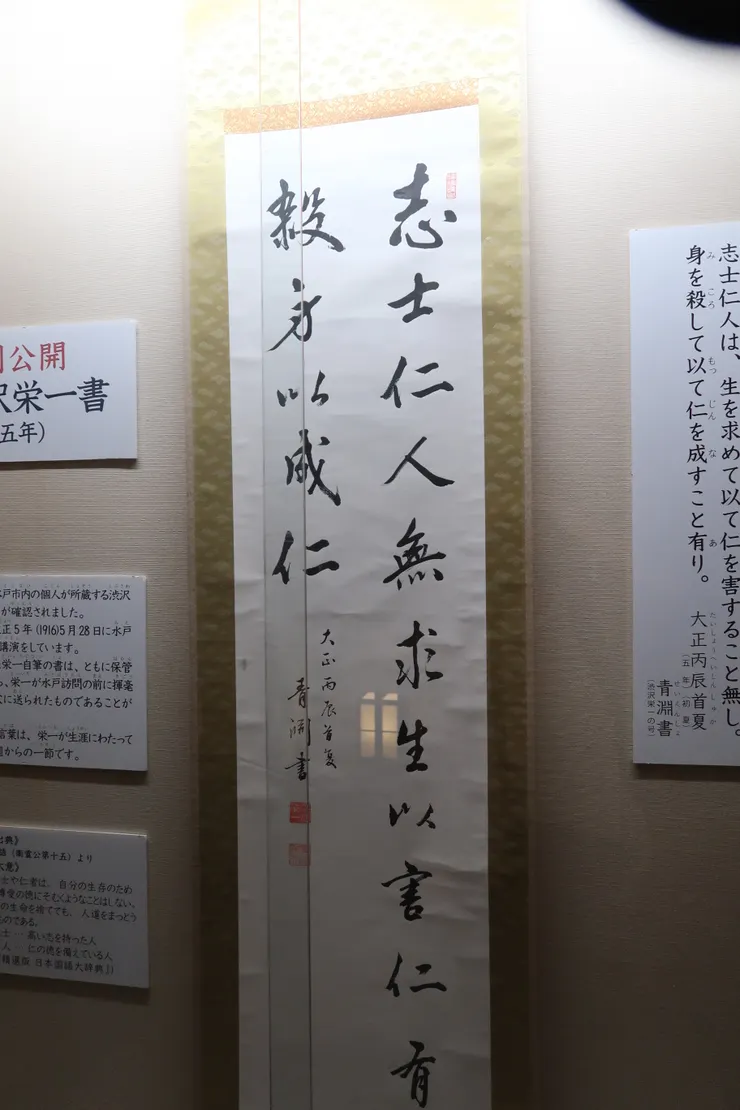 志士仁人無求生以害仁有
殺身以成仁
大正丙辰首夏
青淵書
志士仁人は、生を求めて以て仁を害すること無し。
身を殺して以て仁を成すこと有り。
み ころ もっ じん な あ
大正丙辰首夏
たいしょうへいしんしゅか
(五年)(初夏)
青淵書
せいえんしょ
(渋沢栄一の号)
公開
沢栄一書
五年)
戸市内の個人が所蔵する渋沢
が確認されました。
正5年(1916)5月28日に水戸
講演をしています。
栄一自筆の書は、ともに保管
、栄一が水戸訪問の前に揮毫
に送られたものであることが
言葉は、栄一が生涯にわたって
からの一節です。
出典》
語(衛霊公第十五)より
大意》
士や仁者は、自分の生存のため
博愛の徳にそむくようなことはしない。
の生命を捨ててでも、人道をまっとう
ものである。
士…高い志を持った人
人…仁の徳を備えている人
精選版 日本国語大辞典』)